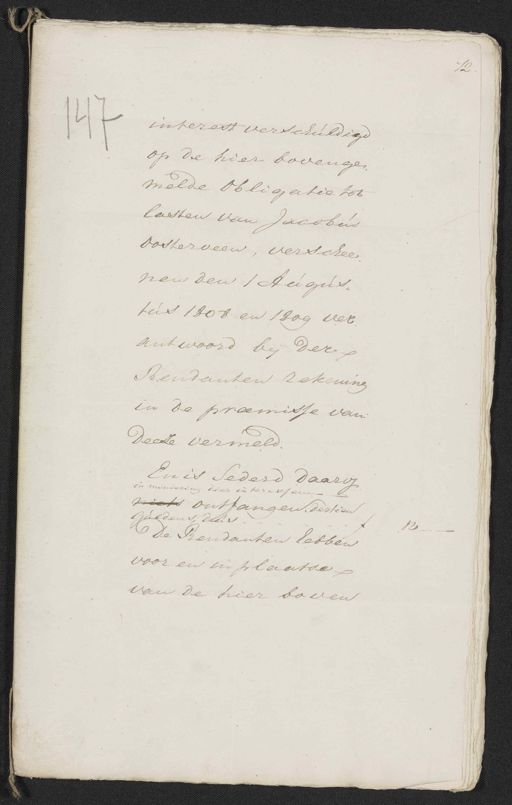 12.
147
interest verschúldigd
op de hier bovenge,
melde Obligatie tot
lasten van Jacobús
Oosterveen, verschee,
nen den 1 Aúgús,
tús 1808 en 1809 ver
antwoord bij Der
Rendanten rekening
in de praemisse van
Deeze vermeld.
En is Sederd daarop
in mindering
niets ontfangen
guldens dus
De Rendanten hebben
voor en in plaatse
van de hier boven